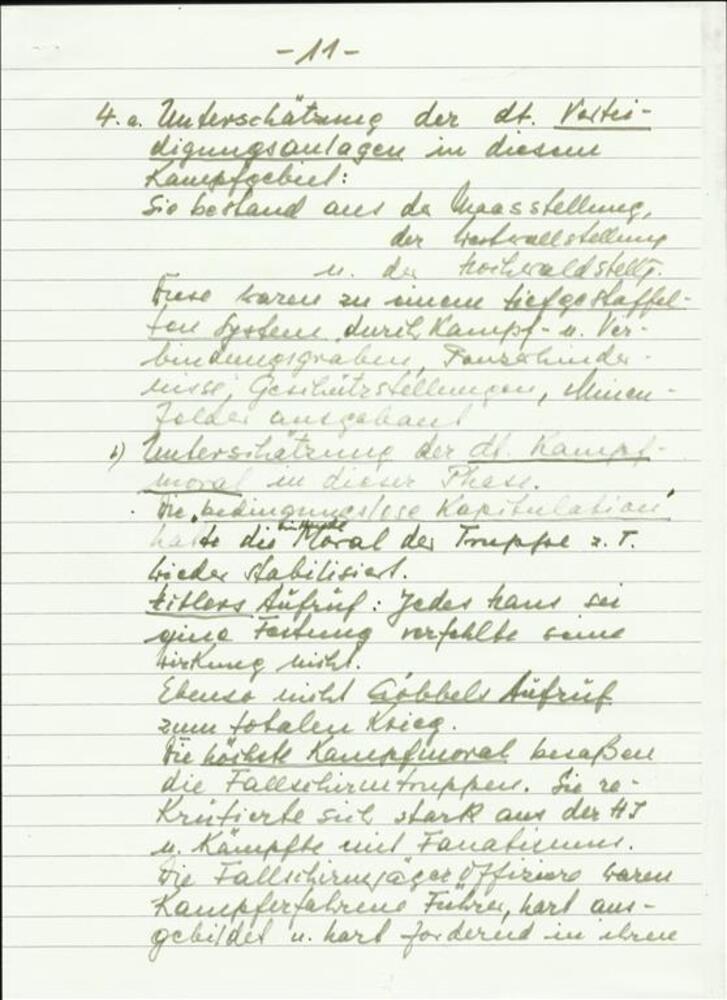 - 11 -
4. a. Unterschätzung der dt. Vertei-
digungsanlagen in diesem
Kampfgebiet:
Sie bestand aus der Maasstellung,
der Westwallstellung
u. der Hochwaldstellg.
Diese waren zu einem tiefgestaffel-
ten System durch Kampf- u. Ver-
bindungsgraben, Panzerhinder-
nisse, Geschützstellungen, Minen-
felder ausgebaut
b) Unterschätzung der dt. Kampf-
moral in dieser Phase.
Die "bedingungslose Kapitulation"
hatte die Moral der Truppe z. T.
wieder stabilisiert.
Hitlers Aufruf: Jedes Haus sei
eine Festung verfehlte seine
Wirkung nicht.
Ebenso nicht Göbbels Aufruf
zum totalen Krieg.
Die höchste Kampfmoral besaßen
die Fallschirmtruppen. Sie re-
krutierte sich stark aus der HJ
u. Kämpfte mit Fanatismus.
Die Fallschirmjägeroffiziere waren
Kampferfahrene Führer, hart aus-
gebildet u. hart fordernd in ihren